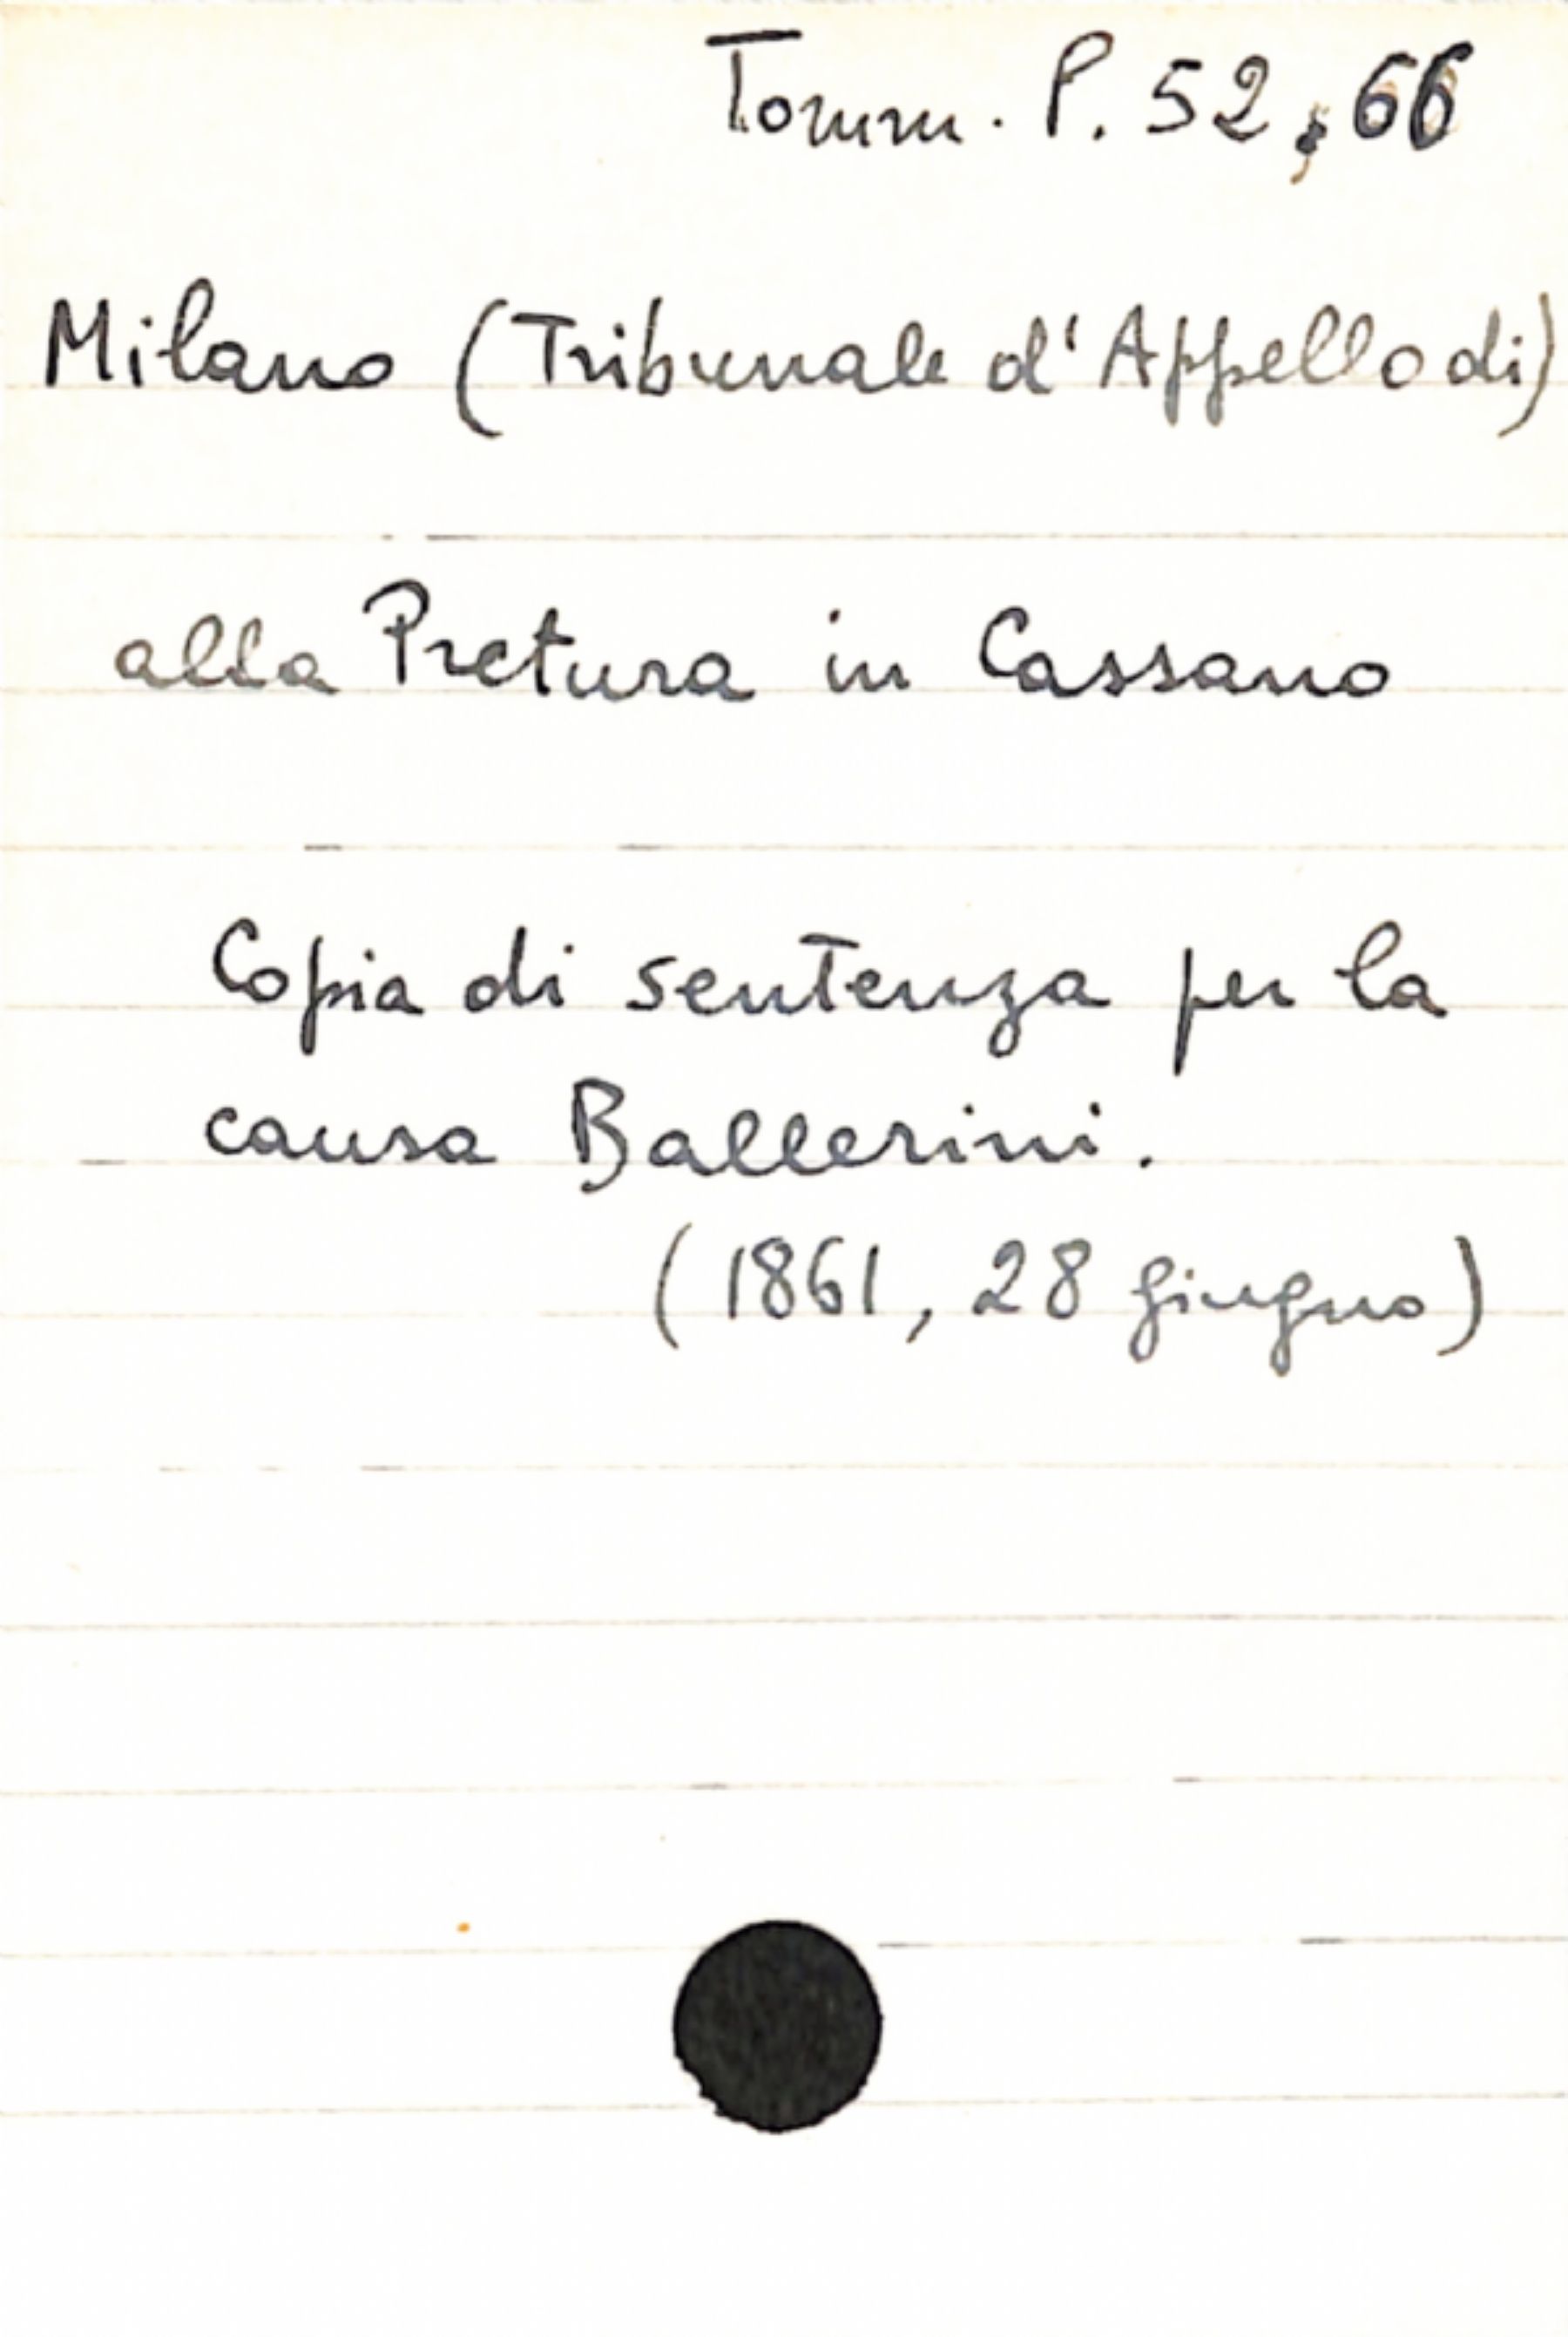 Tomm. P. 52, 66
Milano (Tribunale d'Appello di)
alla Pretura in Cassano
Copia di sentenza per la
causa Ballerini.
(1861, 28 giugno)